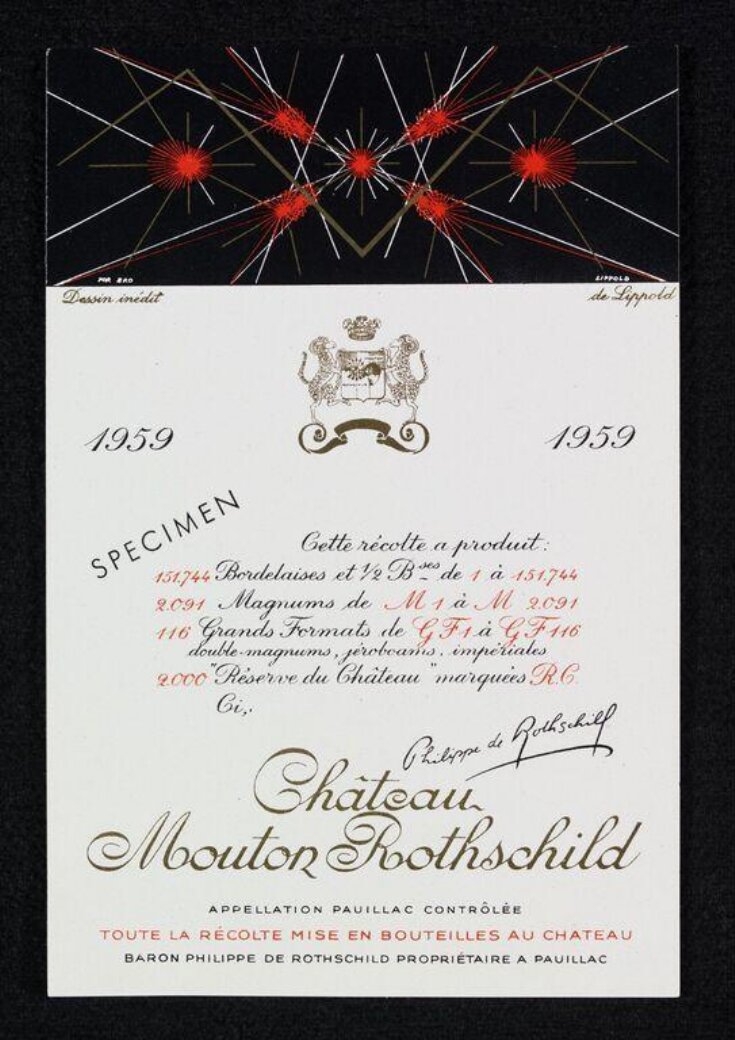 POR ERO LIPPOLD
Dessin inédit de Lippold
1959 1959
SPECIMEN
Cette récolte a produit:
151.744 Bordelaises et 1/2 Bses de 1 à 151.744
2.091 Magnums de M 1 à M 2.091
116 Grands Formats de GF1 à GF116
double-magnums, jéroboams, impériales
2.000 "Réserve du Château" marquées R.C.
Ci,.
Philippe de Rothschild
Château
Mouton Rothschild
APPELLATION PAUILLAC CONTRÔLÉE
TOUTE LA RÉCOLTE MISE EN BOUTEILLES AU CHÂTEAU
BARON PHILIPPE DE ROTHSCHILD PROPRIÉTAIRE A PAUILLAC